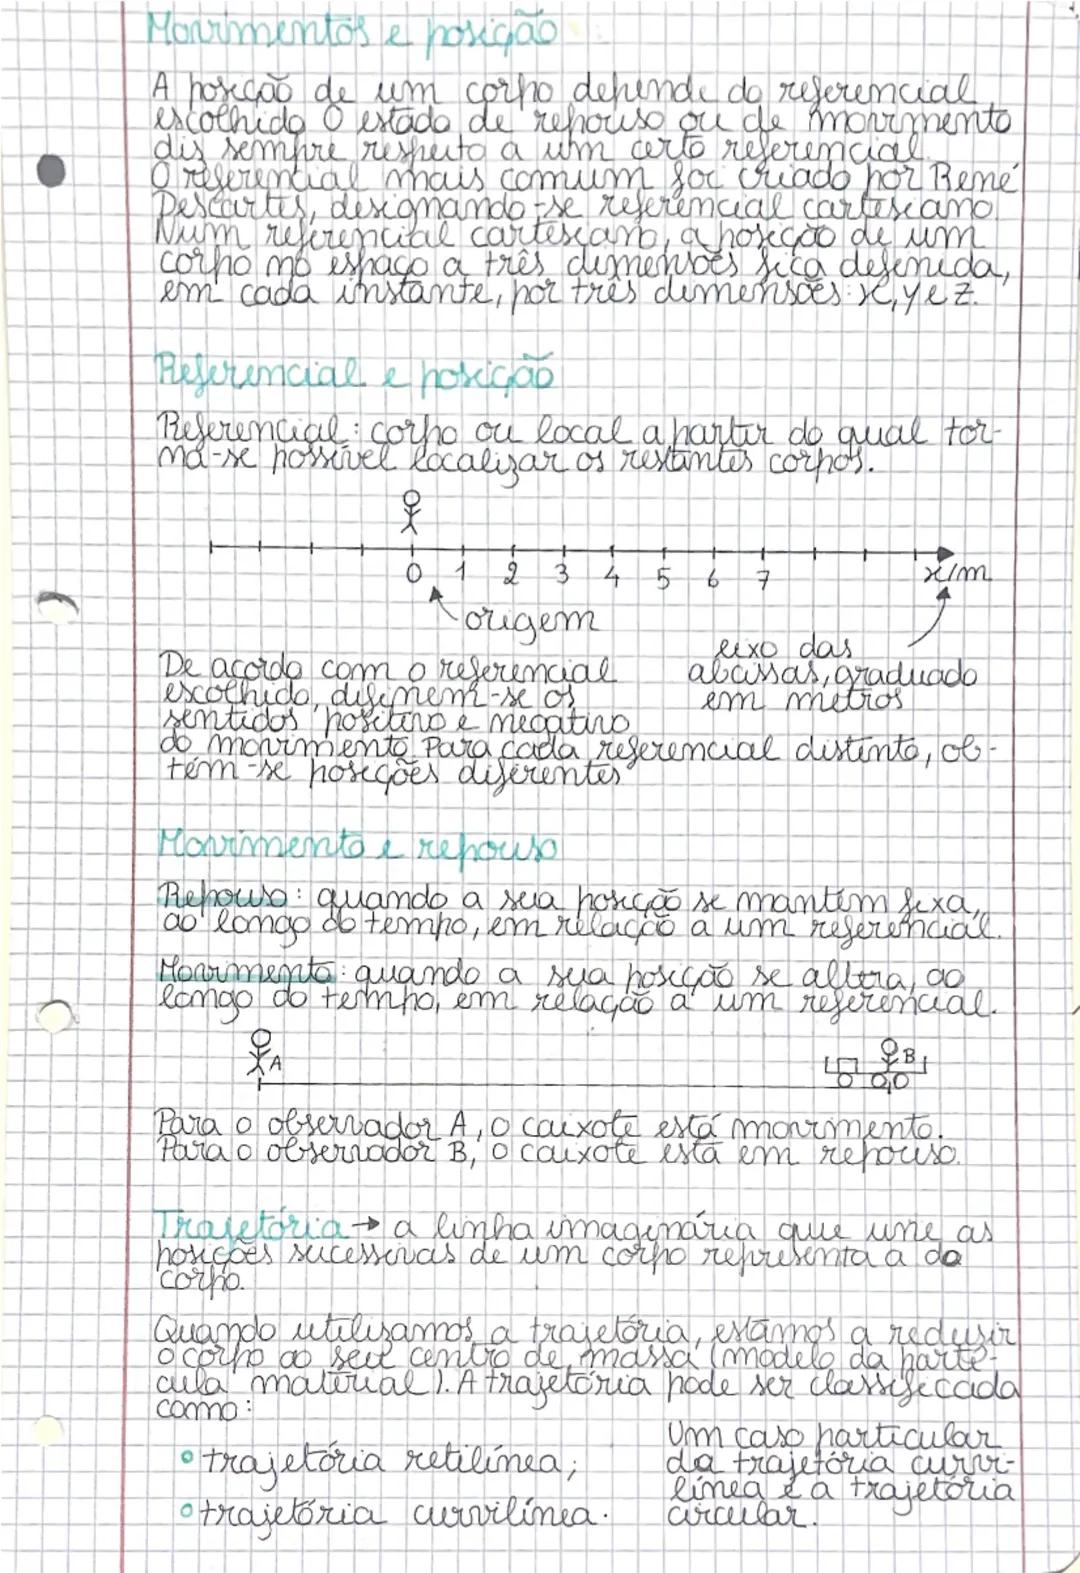 Movimentos e posição
A posição de um corpo depende do referencial
escolhido O estado de repouso ou de movimento
diz sempre respeito a um certo referencial.
O referencial mais comum foi criado por René
Descartes, designando-se referencial cartesiano.
Num referencial cartesiano, a posição de um
corpo no espaço a três dimensões fica definida,
em cada instante, por três dimensões: x, y e z.
Referencial e posição
Referencial: corpo ou local a partir do qual tor-
na-se possível localizar os restantes corpos.
0 1 2 3 4 5 6 7 x/m
origem
eixo das
abcissas, graduado
em metros
De acordo com o referencial
escolhido, definem-se os
sentidos positivo e negativo
do movimento. Para cada referencial distinto, ob-
têm-se posições diferentes
Movimento e repouso
Repouso: quando a sua posição se mantém fixa,
ao longo do tempo, em relação a um referencial.
Movimento: quando a sua posição se altera, ao
longo do tempo, em relação a um referencial.
A B
Para o observador A, o caixote está movimento.
Para o observador B, o caixote está em repouso.
Trajetória → a linha imaginária que une as
posições sucessivas de um corpo representa a do
corpo.
Quando utilizamos a trajetória, estamos a reduzir
o corpo ao seu centro de massa (modelo da partí-
cula material). A trajetória pode ser classificada
como:
• trajetória retilínea;
• trajetória curvilínea.
Um caso particular
da trajetória curvi-
línea é a trajetória
circular.